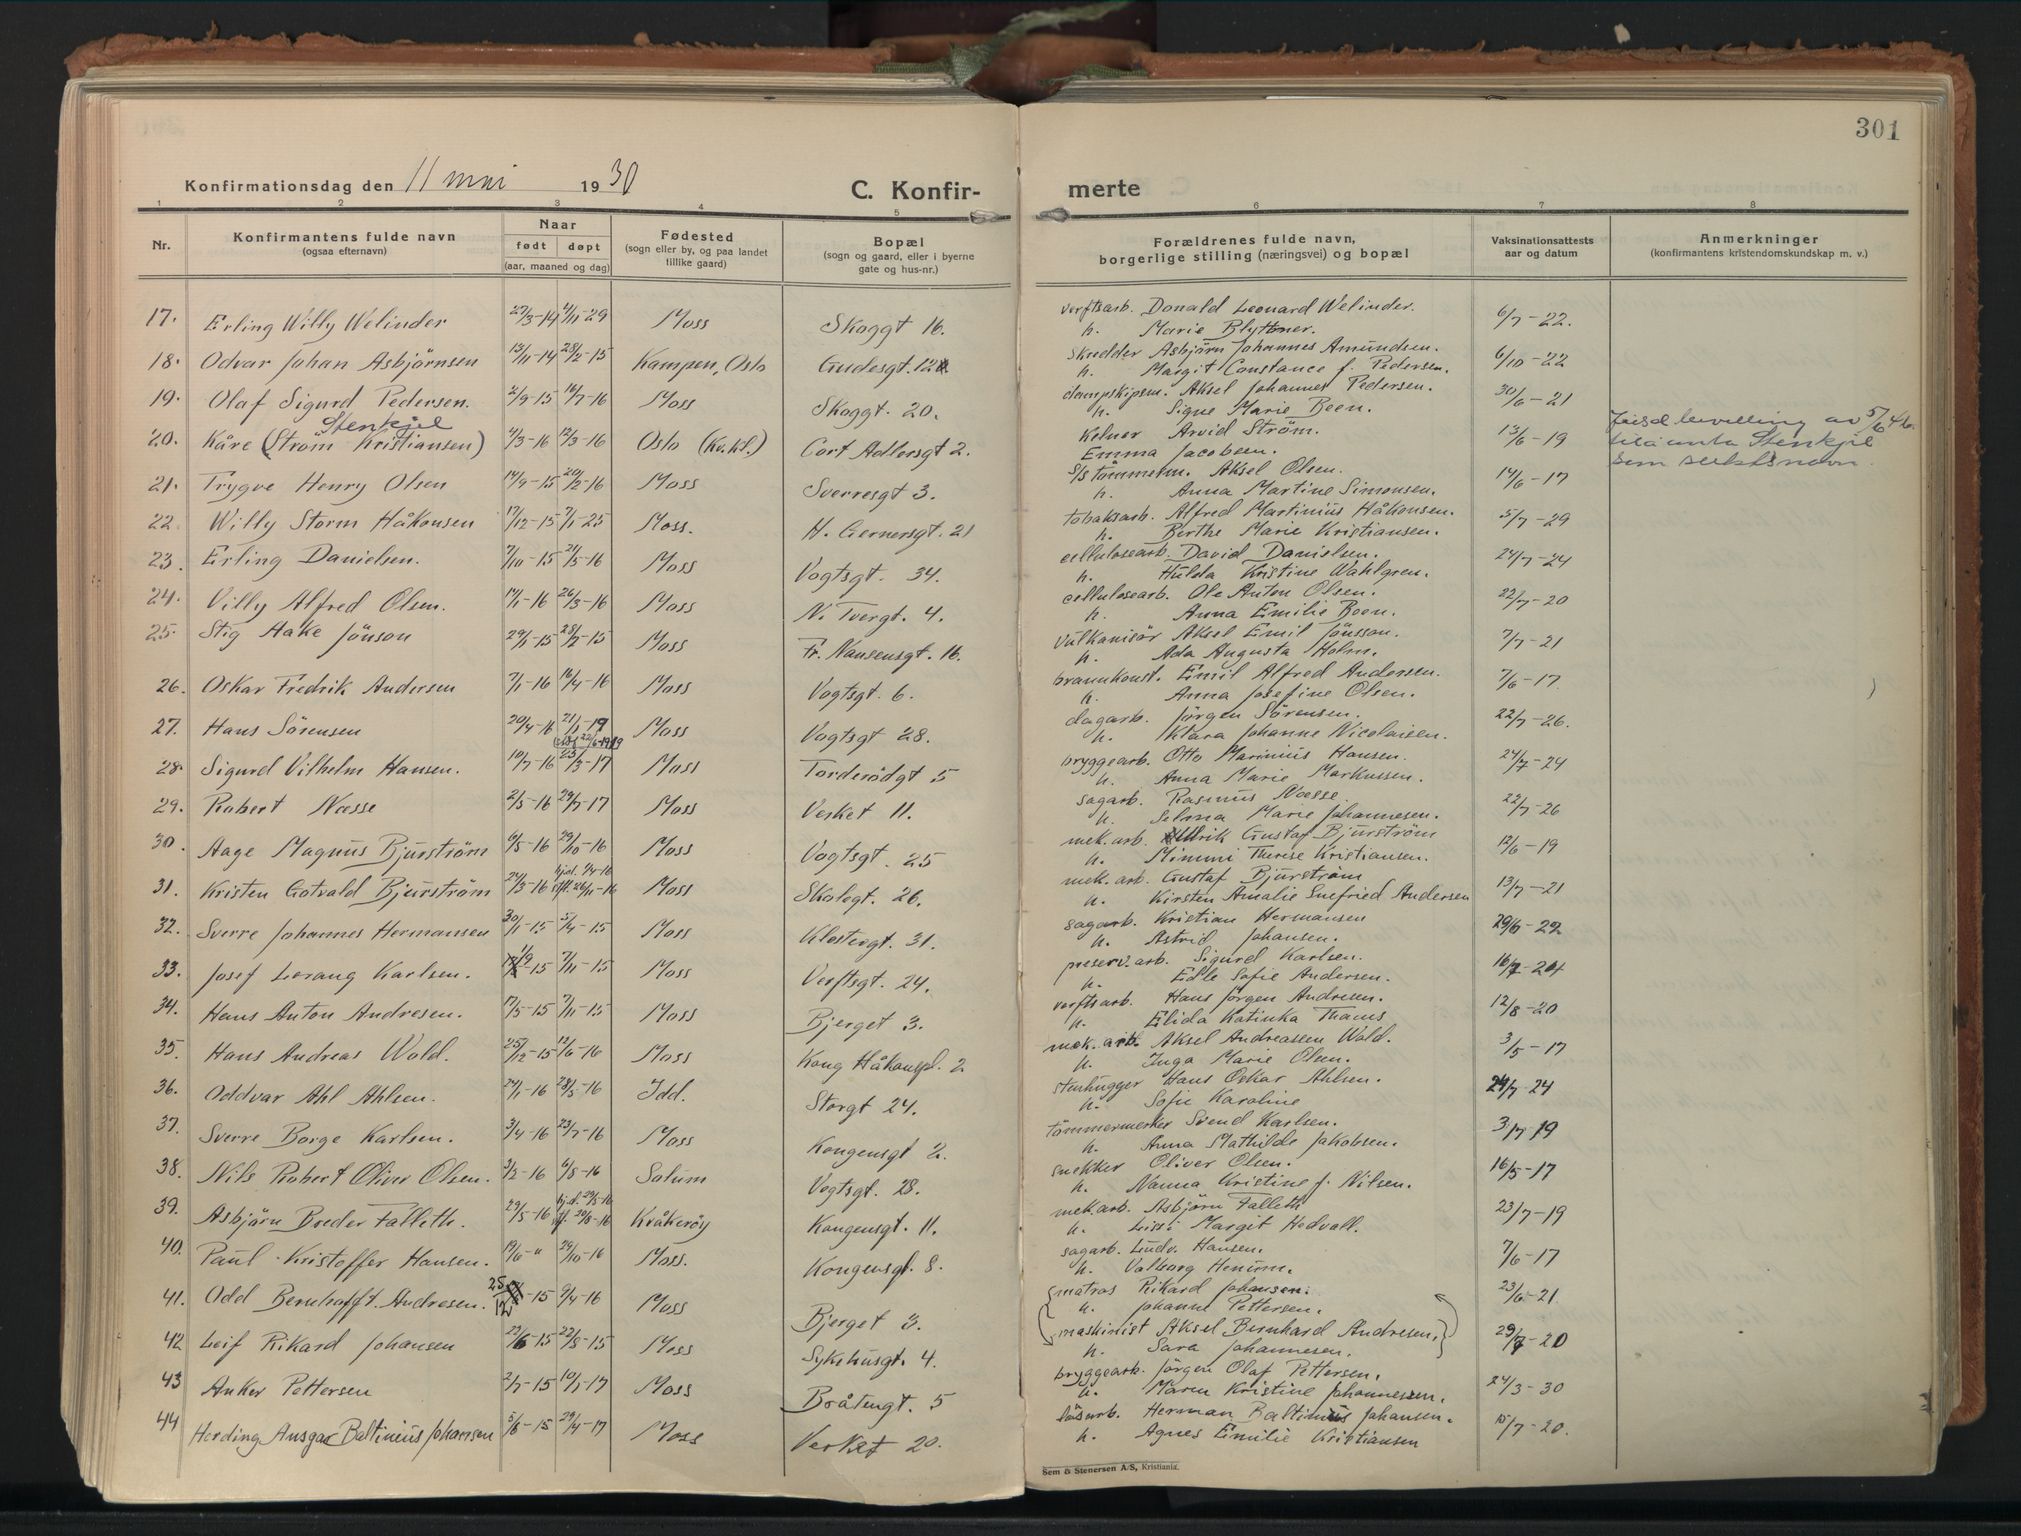 301
Konfirmationsdag den 11 mai 1930 C. Konfir- merte
1 2 3 4 5 6 7 8
Nr. Konfirmantens fulde navn (ogsaa efternavn) Naar født døpt (aar, maaned og dag) Fødested (sogn eller by, og paa landet tillike gaard) Bopæl (sogn og gaard, eller i byerne gate og hus-nr.) Forældrenes fulde navn, borgerlige stilling (næringsvei) og bopæl Vaksinationsattests aar og datum Anmerkninger (konfirmantens kristendomskundskap m. v.)
17. Erling Willy Welinder 27/3-14 4/11-29 Moss Skoggt 16. verftsarb. Donald Leonard Welinder. 6/7-22.
h. Marie Blyttner.
18. Odvar Johan Asbjørnsen 13/11-14 28/2-15 Kampen, Oslo Gudesgt. 12 skredder Asbjørn Johannes Amundsen. 6/10-22
h. Margit Constance f. Pedersen.
19. Olaf Sigurd Pedersen. 2/9-15 16/7-16 Moss Skoggt. 20. dampskipsm. Aksel Johannes Pedersen. 30/6-21
h. Signe Marie Boen.
Stenkjil
20. Kåre (Strøm Kristiansen) 4/3-16 12/3-16 Oslo (Kv.kl.) Cort Adlersgt 2. Kelner Arvid Strøm. 13/6-19 bevilling av 5/6 46.
Emma Jacobsen. Stenkjil
som slektsnavn.
21. Trygve Henry Olsen 14/9-15 20/2-16 Moss Sverresgt 3. S/S tømmerm. Aksel Olsen. 14/6-17
h. Anna Martine Simonsen.
22. Willy Storm Håkonsen 17/12-15 7/1-25 Moss. H. Gernersgt. 21 tobaksarb. Alfred Martinius Håkonsen. 5/7-29
h. Birthe Marie Kristiansen.
23. Erling Danielsen. 7/10-15 21/5-16 Moss Vogtsgt. 34. cellulosearb. David Danielsen. 24/7-24
h. Hulda Kristine Wahlgren.
24. Villy Alfred Olsen. 14/1-16 26/3-16 Moss N. Tvergt. 4. cellulosearb. Ole Anton Olsen. 22/7-20
h. Anna Emilie Boen.
25. Stig Aake Jönson 29/1-15 28/7-15 Moss Fr. Nansensgt. 16. vulkanisør Aksel Emil Jönsson. 7/7-21
h. Ada Augusta Holm.
26. Oskar Fredrik Andersen 7/1-16 16/4-16 Moss Vogtsgt. 6. brannkonst. Emil Alfred Andersen. 7/6-17
h. Anna Josefine Olsen.
27. Hans Sørensen 20/4-16 21/1-19 Moss Vogtsgt 28. dagarb. Jørgen Sørensen. 22/7-26.
h. Klara Johanne Nicolaisen.
28. Sigurd Vilhelm Hansen. 10/7-16 25/3-17 Moss Torderødgt 5 bryggearb. Otto Marinius Hansen. 24/7-24
h. Anna Marie Markussen.
29. Robert Næsse 2/5-16 29/7-17 Moss Verket 11. sagarb. Rasmus Næsse 22/7-26
h. Selma Marie Johannesen.
30. Aage Magnus Bjurström 6/5-16 29/10-16 Moss Vogtsgt. 25 mek. arb. Ullrik Gustaf Bjurström 12/6-19
h. Mimmi Therese Kristiansen.
31. Kristen Gotvald Bjurström 24/3-16 hjd. 4/4-16 stf. 26/11-16 Moss Skolegt. 26. mek. arb. Gustaf Bjurström 13/7-21
h. Kirsten Amalie Snefried Andersen
32. Sverre Johannes Hermansen 30/1-15 5/4-15 Moss Klostergt. 31. sagarb. Kristian Hermansen 29/6-22
h. Astrid Johansen.
33. Josef Lorang Karlsen. 11/9-15 7/11-15 Moss Verftsgt. 24. preserv. arb. Sigurd Karlsen. 16/7-24
h. Edle Sofie Andersen.
34. Hans Anton Andresen. 17/5-15 7/11-15 Moss Bjerget 3. verftsarb. Hans Jørgen Andresen. 12/8-20
h. Elida Katinka Thams
35. Hans Andreas Wold. 25/12-15 12/6-16 Moss Kong Håkonspl. 2 mek. arb. Aksel Andreassen Wold. 3/5-17
h. Inga Marie Olsen.
36. Oddvar Ahl Ahlsen. 24/1-16 28/5-16 Idd. Storgt 24. stenhugger Hans Oskar Ahlsen. 24/7-24
h. Sofie Karoline
37. Sverre Borge Karlsen. 3/4-16 23/7-16 Moss Kongensgt 2. tømmermerker Svend Karlsen. 3/7-19
h. Anna Mathilde Jakobsen.
38. Nils Robert Oliver Olsen. 3/2-16 6/8-16 Solum Vogtsgt. 28. snekker Oliver Olsen. 16/5-17
h. Nanna Kristine f. Nilsen.
39. Asbjørn Breder Falleth. 23/5-16 hj.d. 29/5-16 stf. 20/8-16 Kråkerøy Kongensgt. 11. mek. arb. Asbjørn Falleth 23/7-19
h. Lissi Margit Hedvall.
40. Paul Kristoffer Hansen. 19/6-" 29/10-16 Moss. Kongensgt. 8. sagarb. Ludv. Hansen. 7/6-17
h. Valborg Henum.
41. Odd Bernhofft. Andresen. 25/12-15 9/4-16 Moss Bjerget 3. matros Rikard Johansen. 23/6-21.
h. Johanne Pettersen.
42. Leif Rikard Johansen 22/6-15 22/8-15 Moss Sykehusgt. 4. maskinist Aksel Bernhard Andresen. 29/7-20
h. Sara Johannesen.
43 Anker Pettersen 2/7-15 10/1-17 Moss Bråtengt. 5 bryggearb. Jørgen Olaf Pettersen. 24/3-30
h. Maren Kristine Johannessen.
44 Herding Ansgar Baltinius Johansen 5/8-15 29/4-17 Moss Verket 20. løsarb. Herman Baltinius Johansen. 15/7-20.
h. Agnes Emilie Kristiansen
Sem & Stenersen A/S, Kristiania.